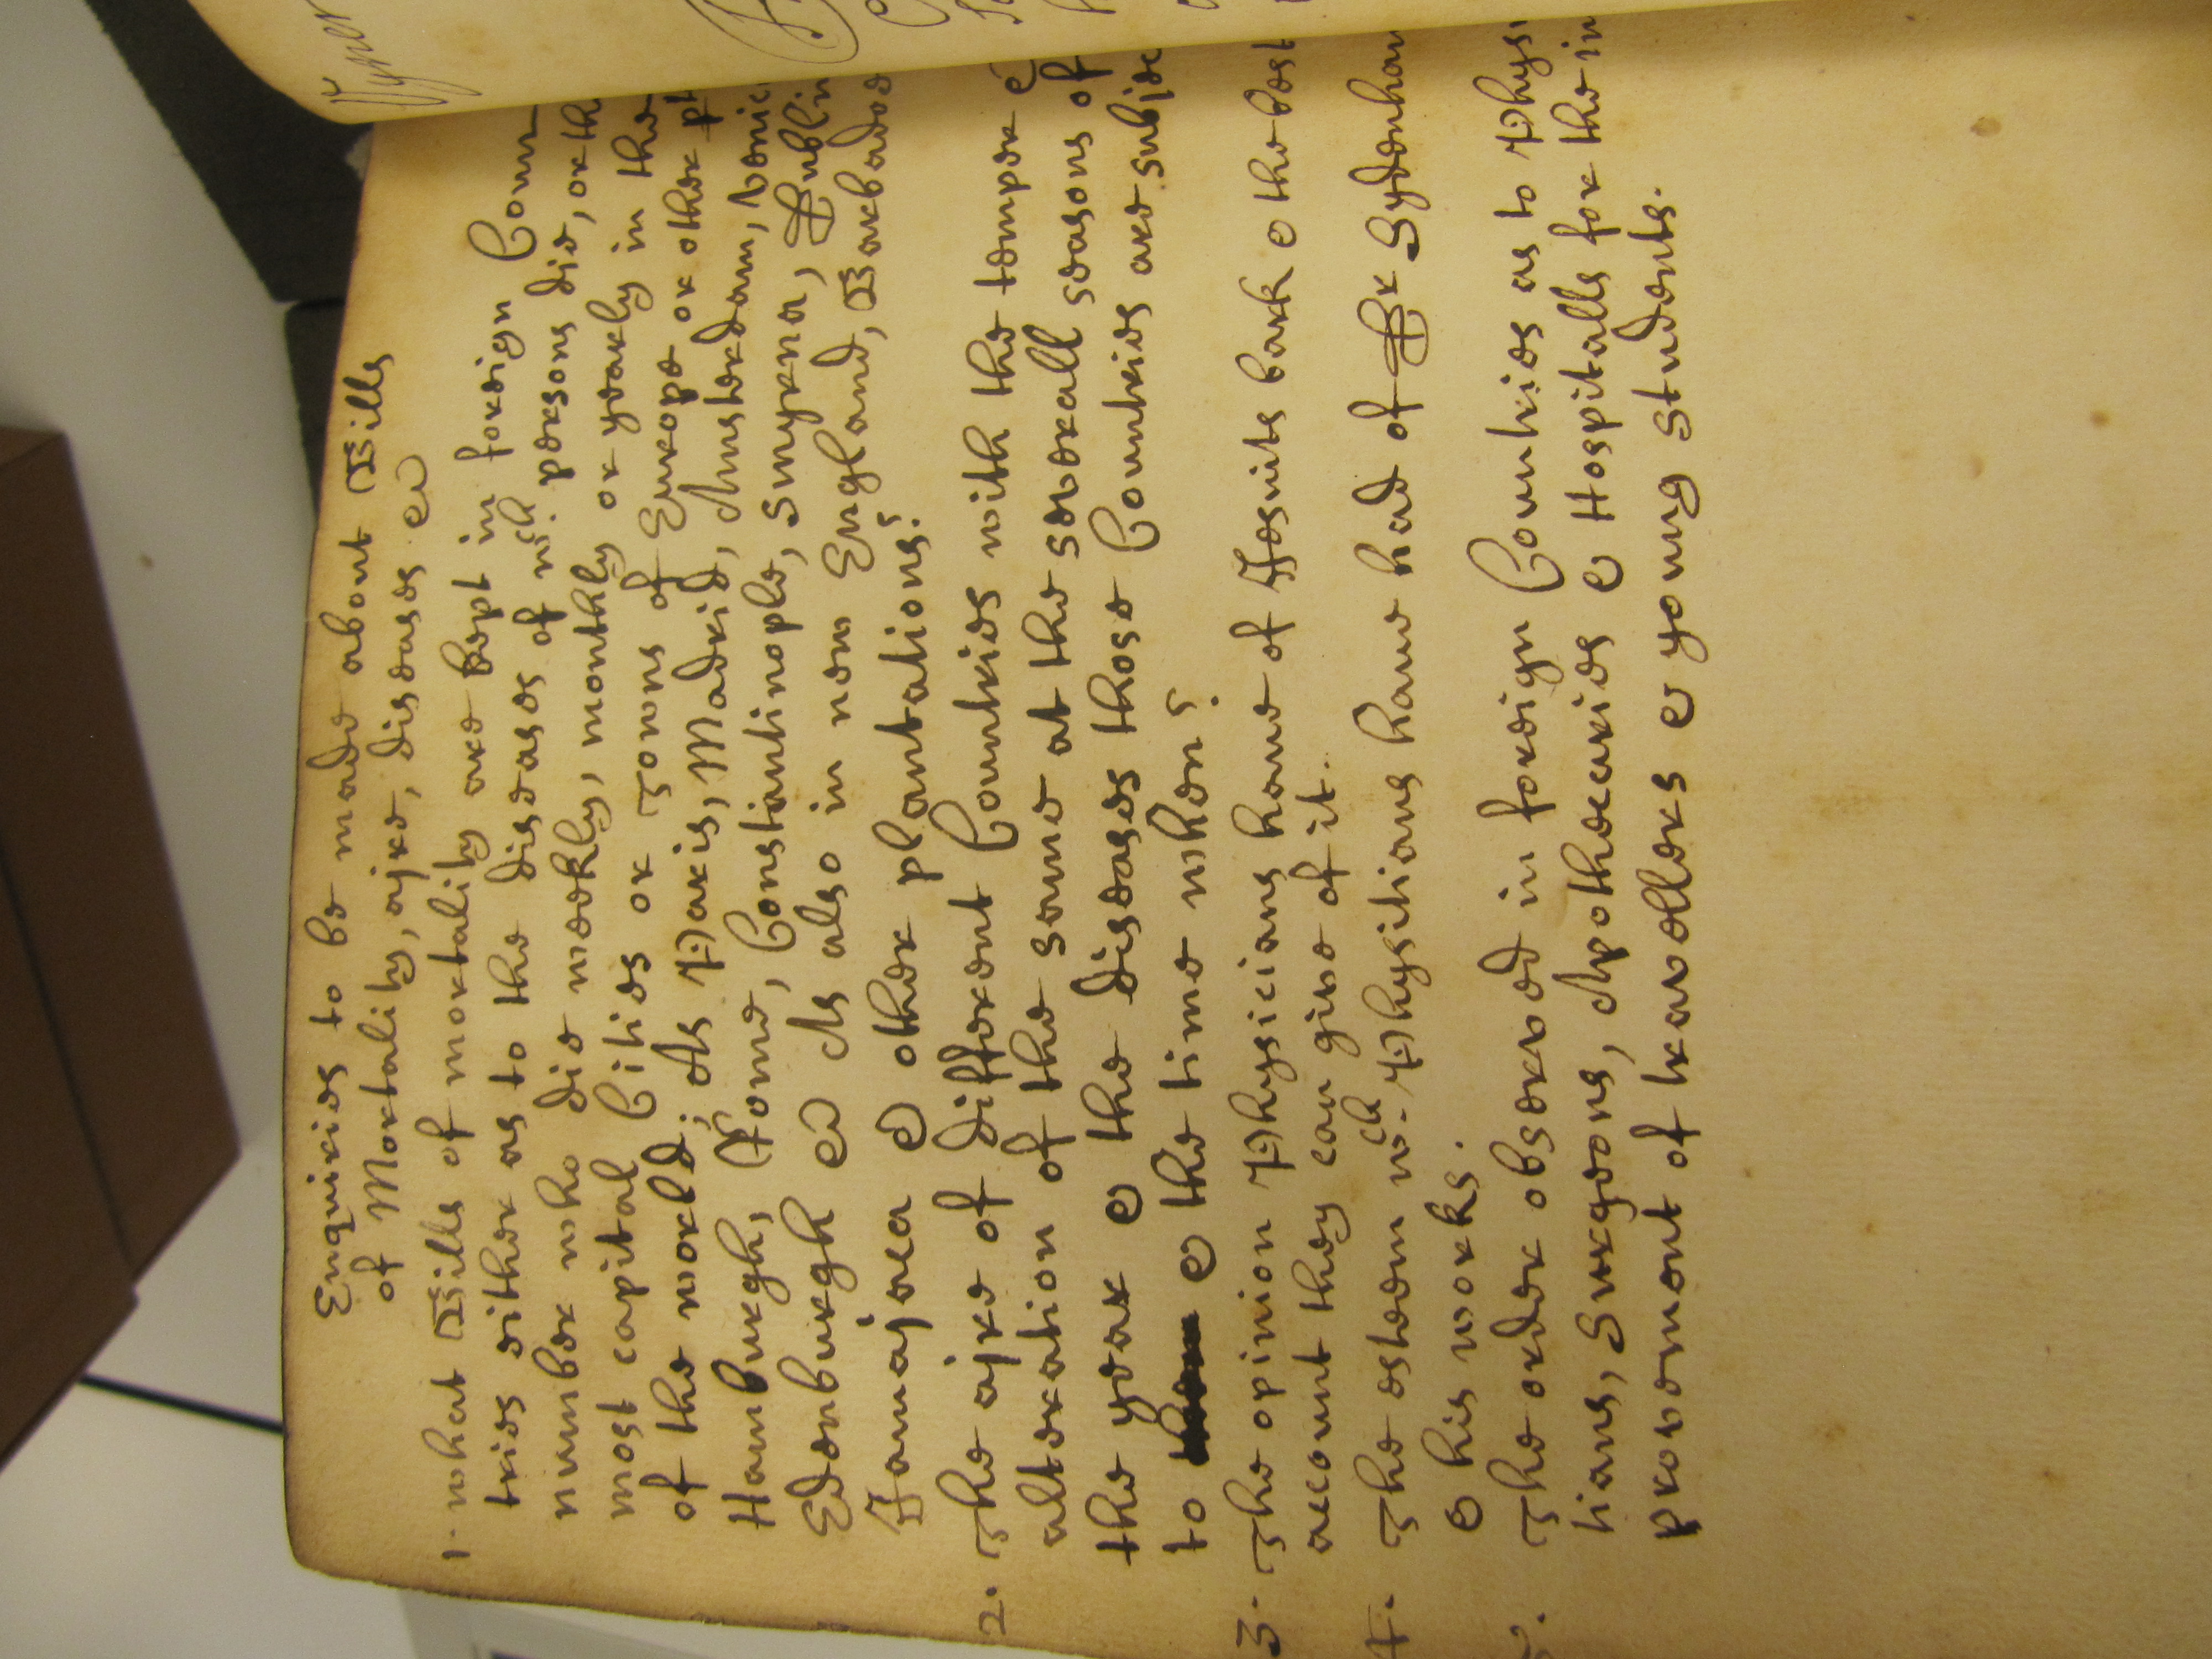 Enquiries to be made about Bills
of Mortality, ajre, diseases &
1. what Bills of mortality are kept in foreign Coun-
tries either as to the diseases of wch. persons die, or th
number who die weekly, monthly or yearly in the
most capital Cities or Towns of Europe or other pl
of the world; As Paris, Madrid, Amsterdam, Venic
Hamburgh, Rome, Constantinople, Smyrna, Dublin
Edenburgh & As also in new England, Barbadoe
Jamajca & other plantations?
2. The ajre of different Countries with the temper &
alteration of the same at the severall seasons of
the year & the diseases those Countries are subjec
to & the time when?
3. The opinion Physicians have of Jesuits bark & the best
account they can give of it.
4. The esteem wch. Physitians have had of Dr Sydenham
& his works.
5. The order observed in foreign Countries as to Physi
tians, Surgeons, Apothecaries & Hospitalls for the im
provement of travellers & young students.